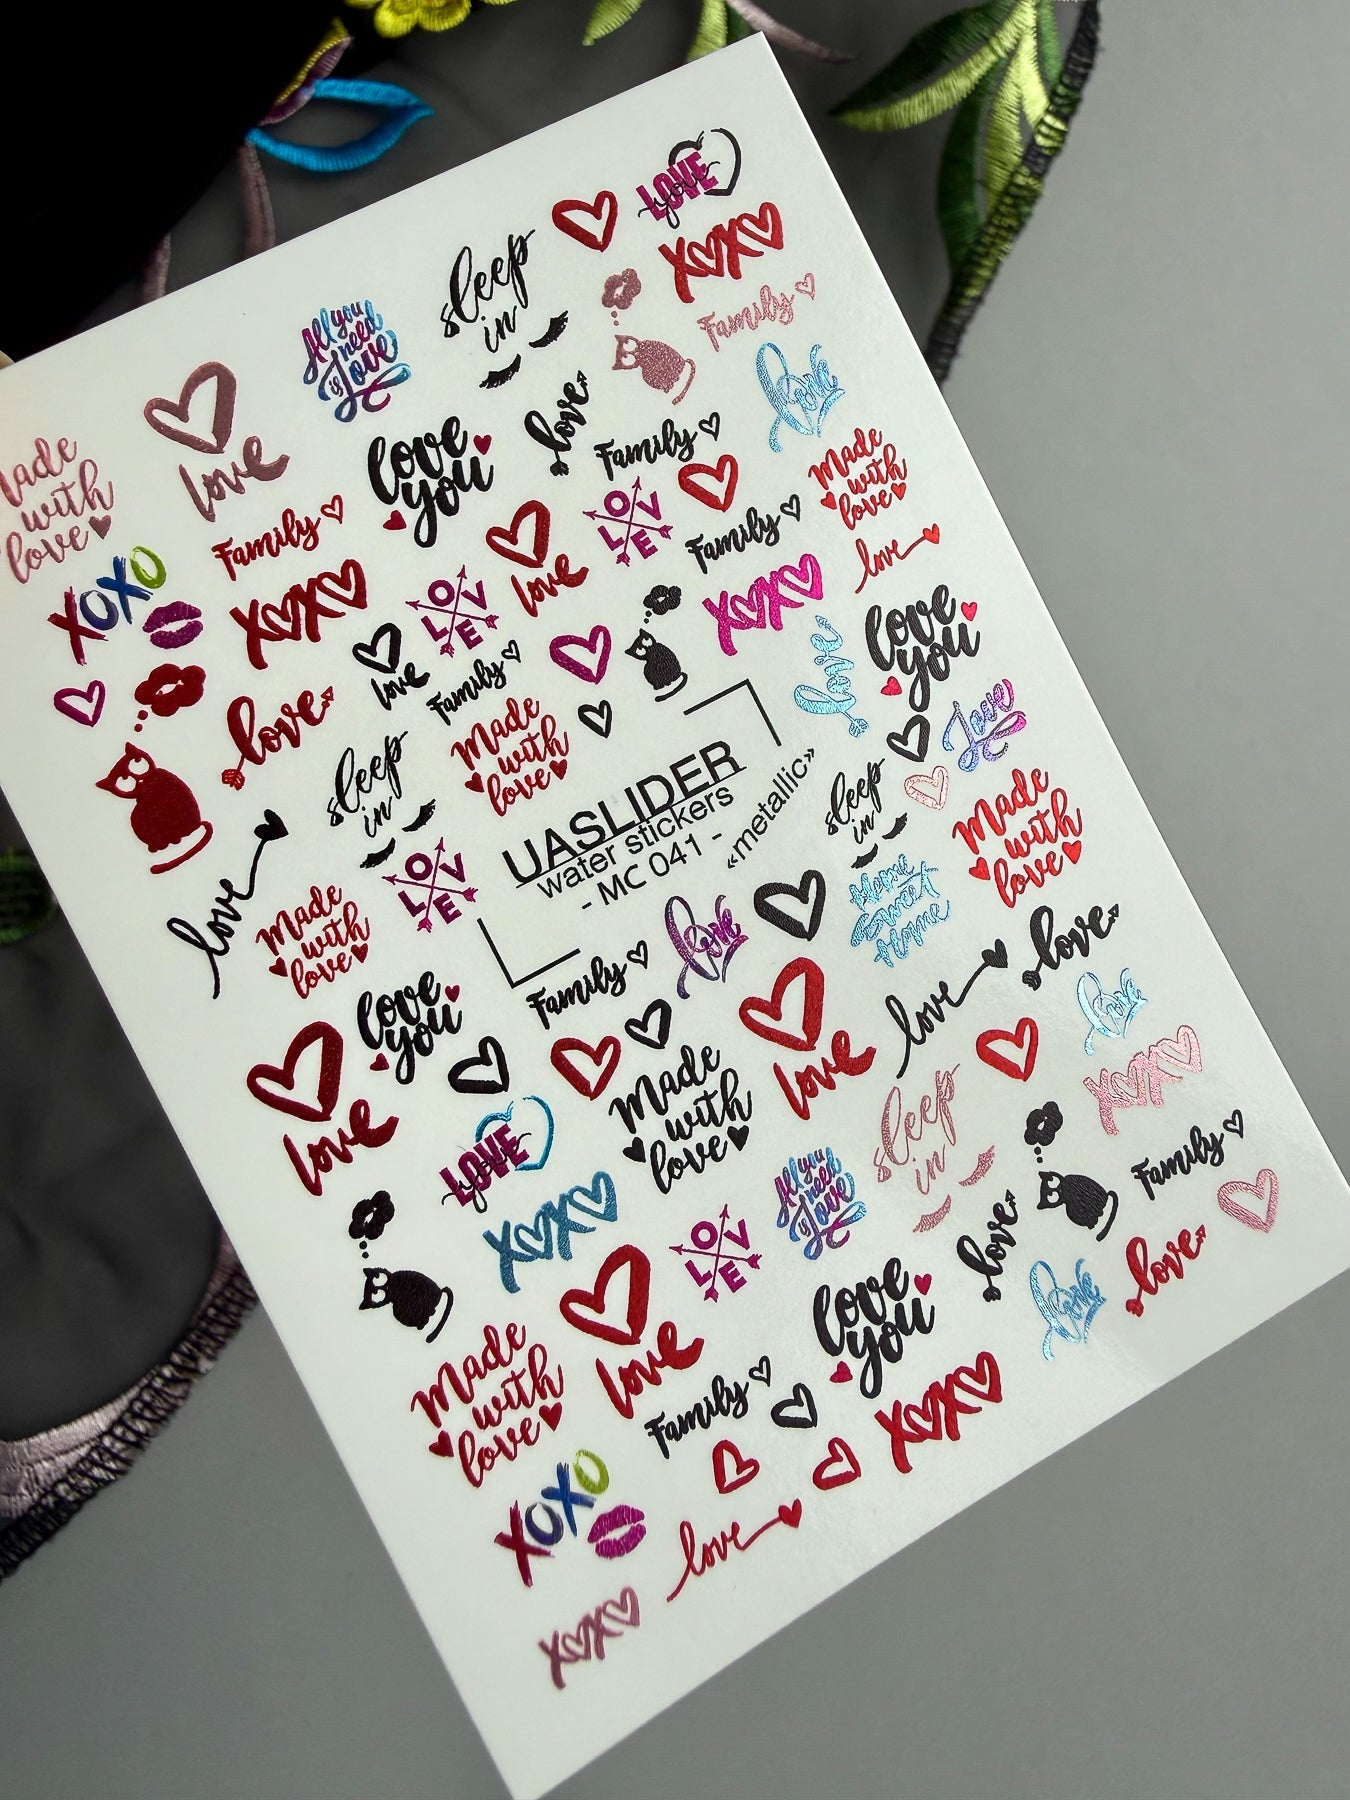 LOVE
you
XOXO
Family
love
sleep
in
All you
need
is Love
love
Made
with
love
love
you
love
Family
LOVE
Made
with
love
love
Family
XOXO
LOVE
love
Family
XOXO
love
XOXO
love
love
Family
Made
with
love
love
love
you
Love
sleep
in
love
UASLIDER
water stickers
- MC 041 -
«metallic»
sleep
in
Made
with
love
Home
Sweet
Home
LOVE
Made
with
love
love
love
Family
love
love
love
you
love
love
Made
with
love
sleep
in
XOXO
love
LOVE
you
XOXO
LOVE
All you
need
is Love
Family
love
love
love
love
you
love
Made
with
love
Family
XOXO
XOXO
love
XOXO